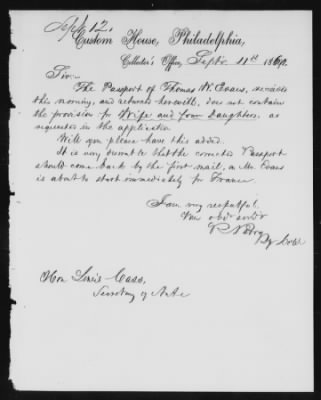 Sept 12.
Custom House, Philadelphia,
Collector's Office, Sept. 11th 1860.
Sir:
The Passport of Thomas W. Evans, received
this morning, and returned herewith, does not contain
the provision for Wife and four Daughters, as
requested in the application.
Will you please have this added.
It is very desirable that the corrected Passport
should come back by the first mail, as Mr. Evans
is about to start immediately for France.
I am, very respectful,
Your obdt servt
Hon Lewis Cass,
Secretary of State